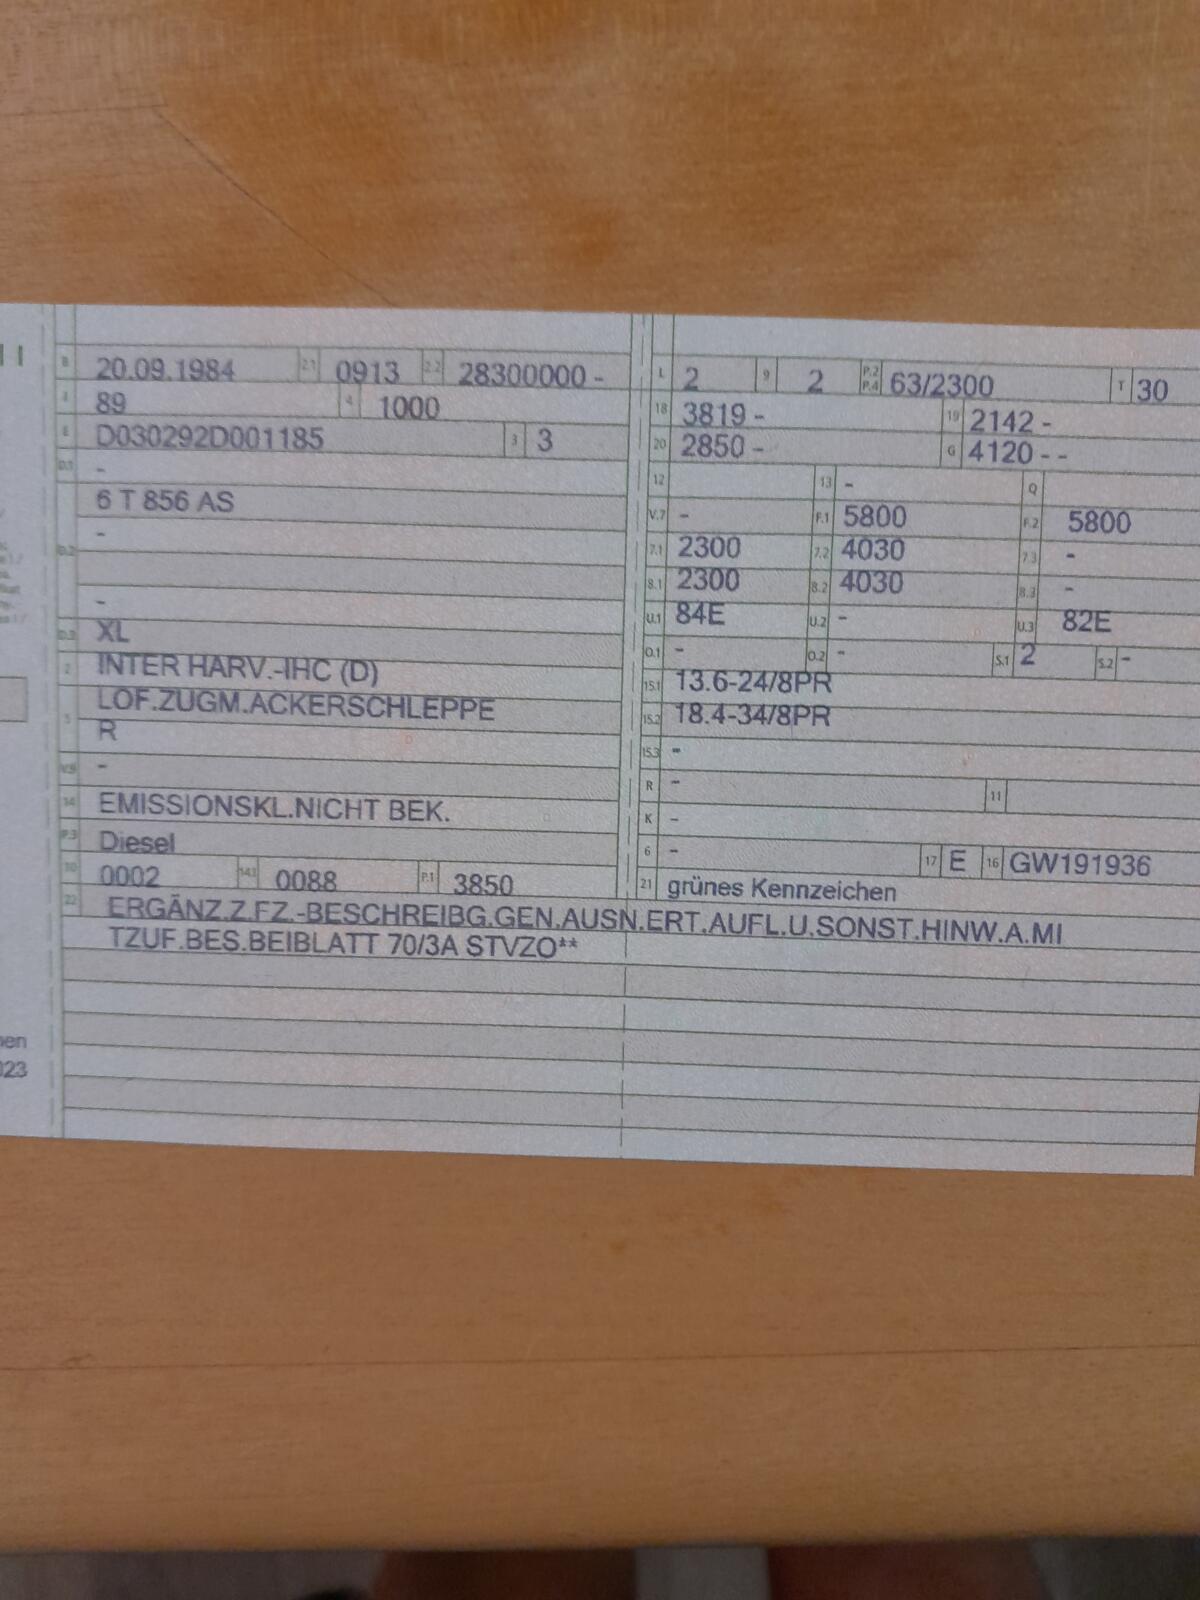 B 20.09.1984 2.1 0913 2.2 28300000 -
J 89 4 1000
E D030292D001185 3 3
D.1 -
6 T 856 AS
-
D.2
-
D.3 XL
2 INTER HARV.-IHC (D)
5 LOF.ZUGM.ACKERSCHLEPPE
R
V.9 -
14 EMISSIONSKL.NICHT BEK.
P.3 Diesel
10 0002 14.1 0088 P.1 3850
L 2 9 2 P.2 P.4 63/2300 T 30
18 3819 - 19 2142 -
20 2850 - G 4120 - -
12 13 - Q
V.7 - F.1 5800 F.2 5800
7.1 2300 7.2 4030 7.3 -
8.1 2300 8.2 4030 8.3 -
U.1 84E U.2 - U.3 82E
O.1 - O.2 - S.1 2 S.2 -
15.1 13.6-24/8PR
15.2 18.4-34/8PR
15.3 -
R - 11
K -
6 - 17 E 16 GW191936
21 grünes Kennzeichen
22 ERGÄNZ.Z.FZ.-BESCHREIBG.GEN.AUSN.ERT.AUFL.U.SONST.HINW.A.MI
TZUF.BES.BEIBLATT 70/3A STVZO**
023